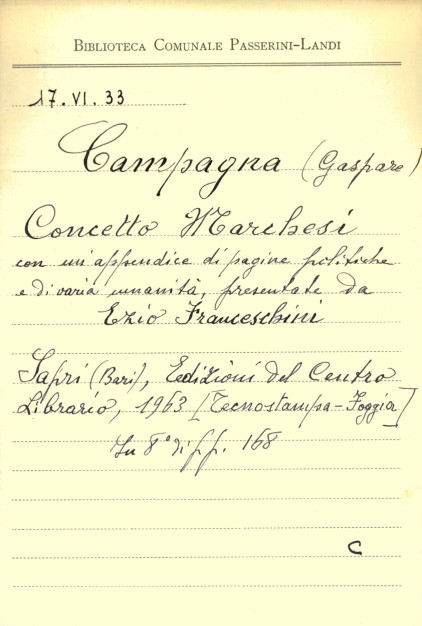 BIBLIOTECA COMUNALE PASSERINI-LANDI
17.VI.33
Campagna (Gaspare)
Concetto Marchesi
con un'appendice di pagine politiche
e di varia umanità, presentate da
Ezio Franceschini
Sapri (Bari), Edizioni del Centro
Librario, 1963 [Tecnostampa-Foggia]
In 8° di pp. 168
C